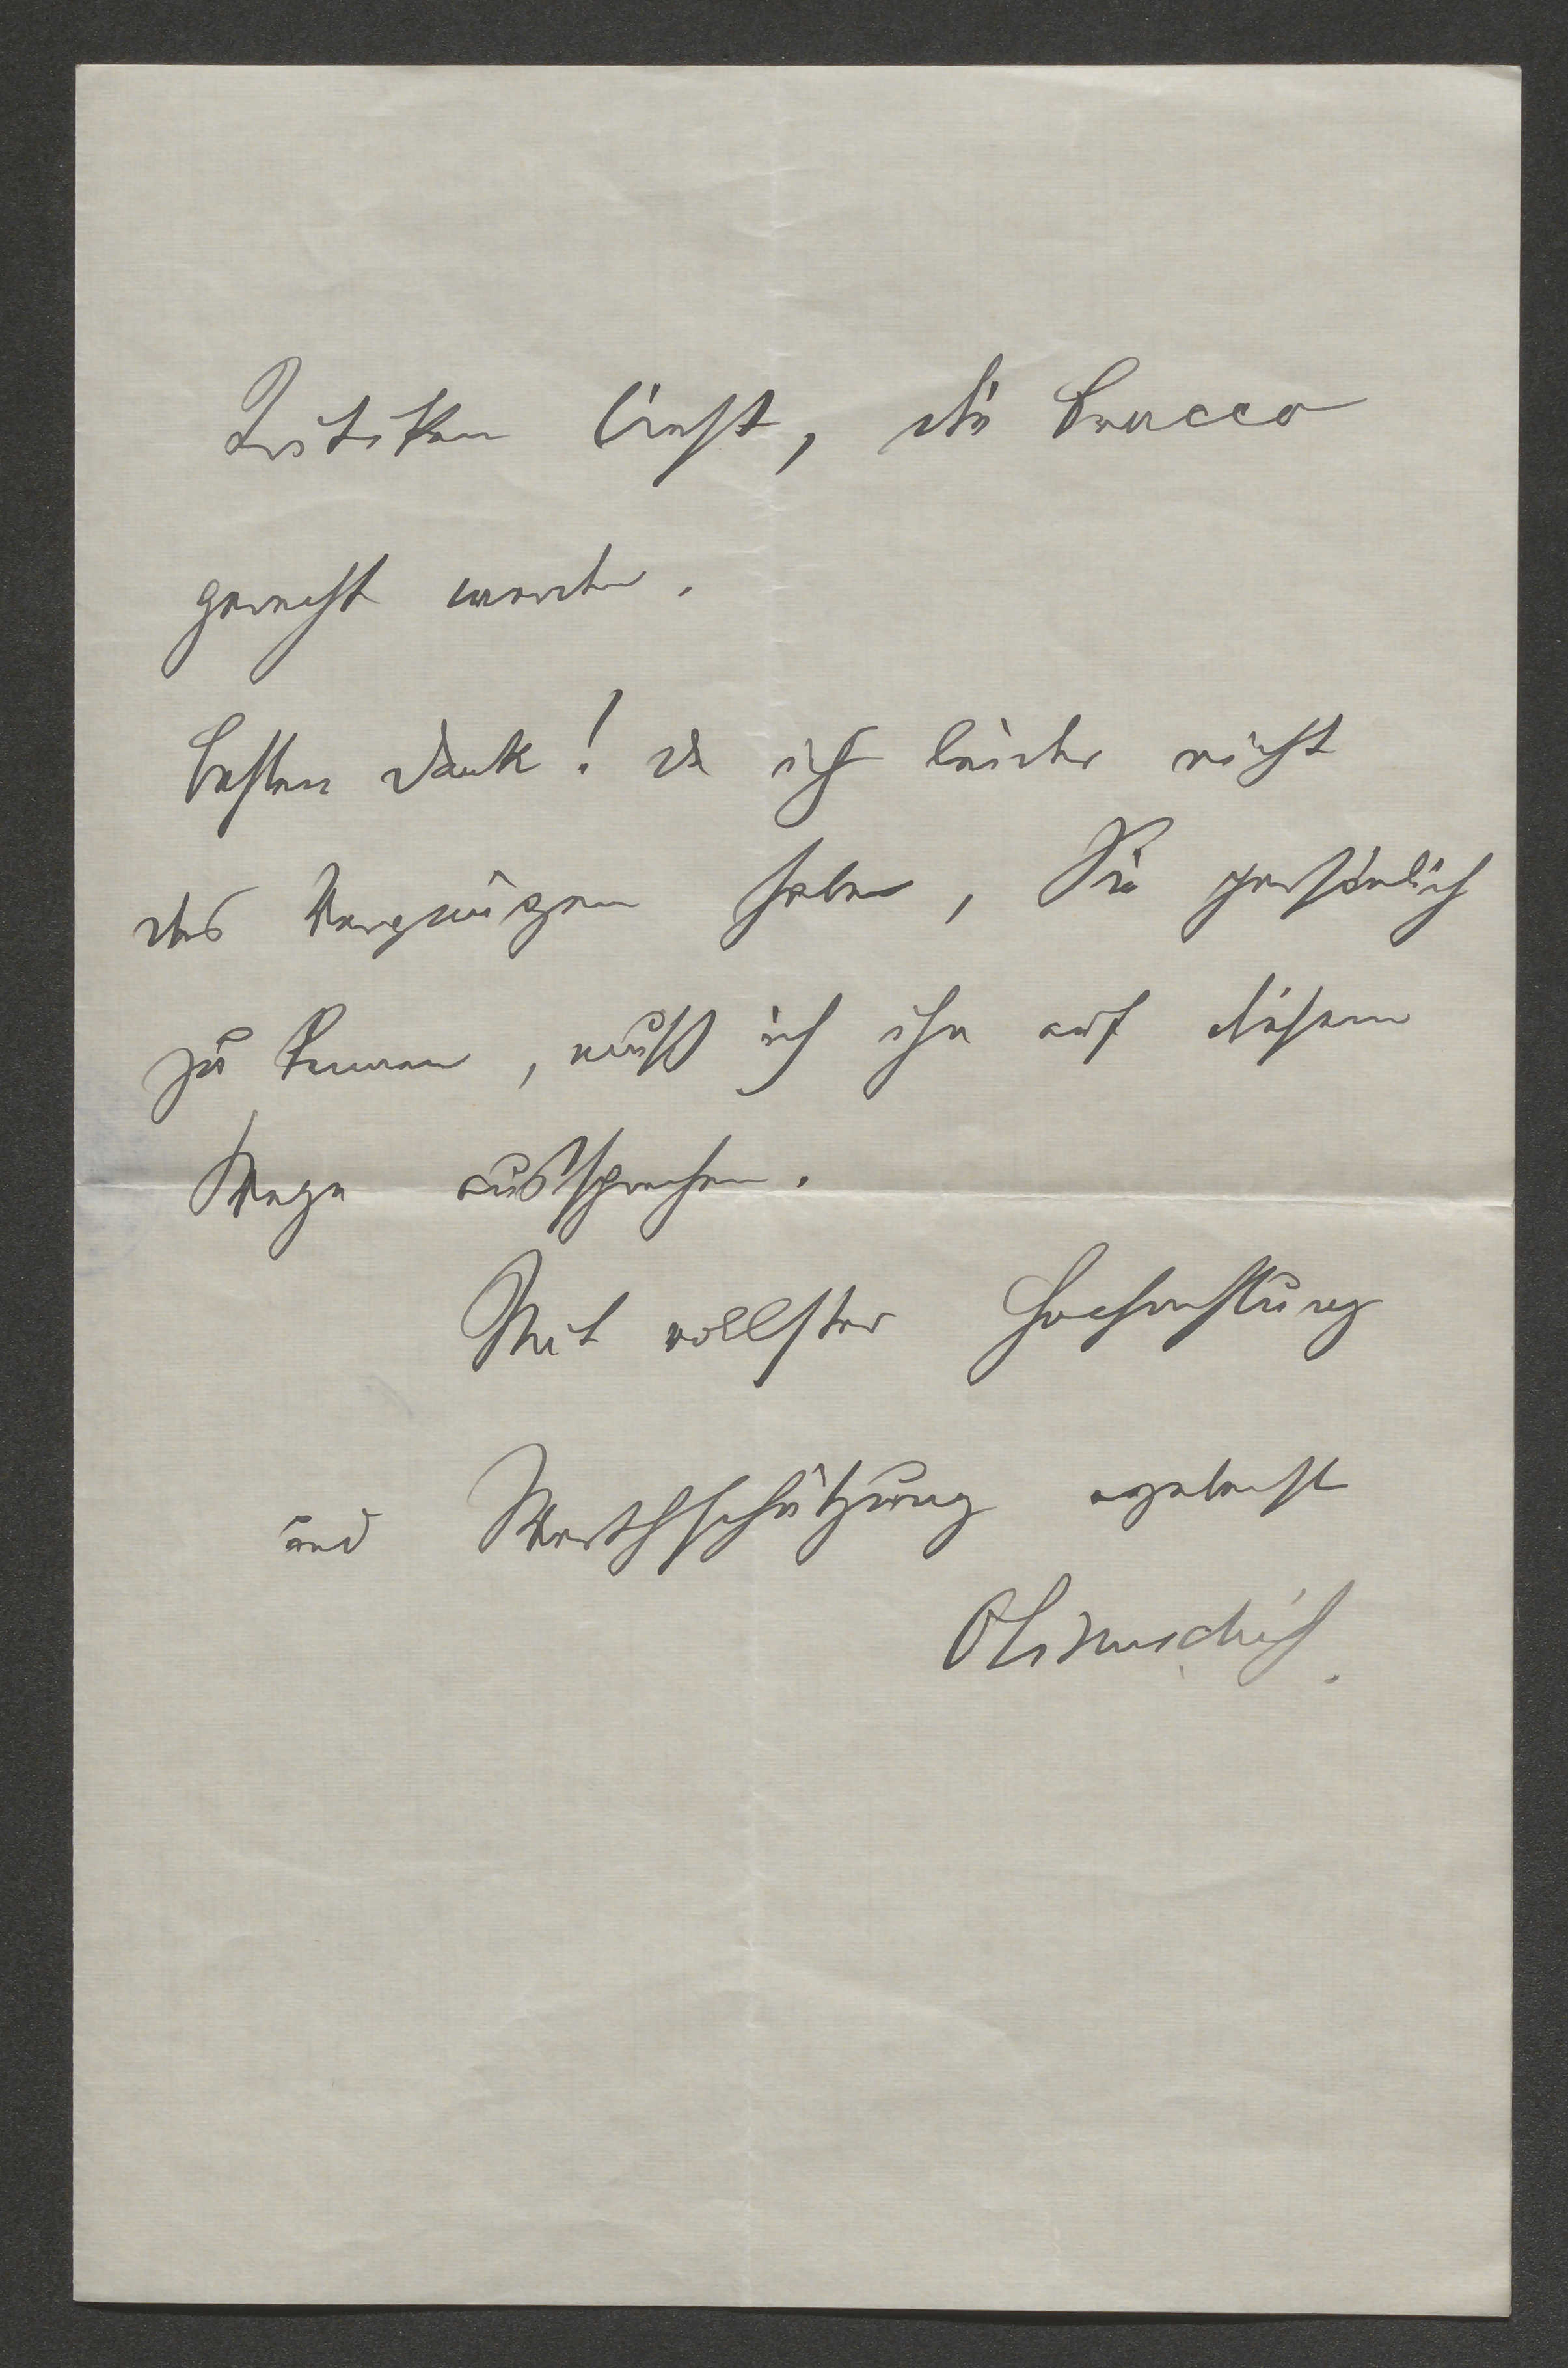 Kritiken liest, die Bracco
gerecht werden.
Besten Dank! Da ich leider nicht
das Vergnügen habe, Sie persönlich
zu kennen, muß ich ihn auf diesem
Wege aussprechen.
Mit vollster Hochachtung
und Werthschätzung ergebenst